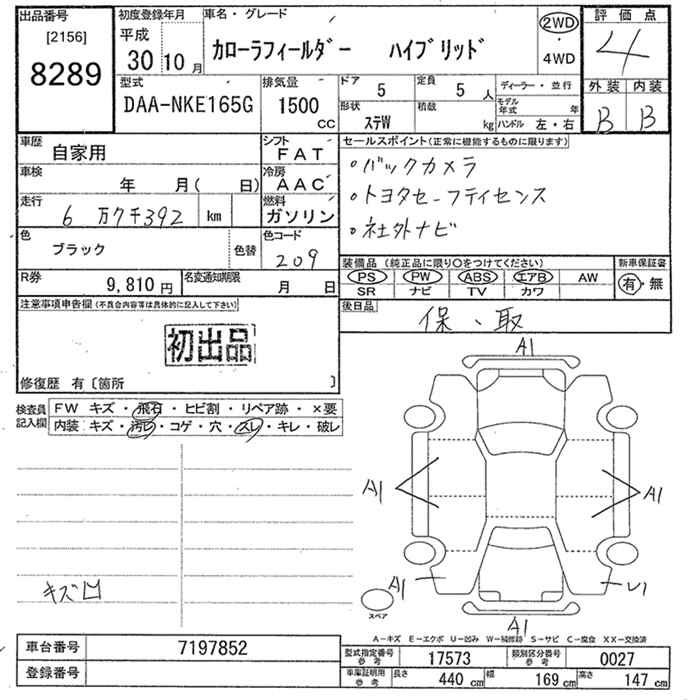 出品番号
[2156]
8289
初度登録年月
平成
30 10 月
車名・グレード
カローラフィールダー ハイブリッド
2WD
・
4WD
評価点
4
外装 内装
B B
型式
DAA-NKE165G
排気量
1500
cc
ドア
5
定員
5 人
形状
ステW
積載
kg
ディーラー・並行
モデル年式 年
ハンドル 左・右
車歴
自家用
シフト
FAT
車検
年 月( 日)
冷房
AAC
走行
6 万9千392 km
燃料
ガソリン
色
ブラック
色替
色コード
209
R券
9,810 円
名変通知期限
月 日
セールスポイント(正常に機能するものに限ります)
・バックカメラ
・トヨタセーフティセンス
・社外ナビ
装備品(純正品に限り○をつけてください)
PS PW ABS エアB AW
SR ナビ TV カワ
新車保証書
有・無
後日品
保、取
注意事項申告欄(不具合内容等は具体的に記入して下さい)
初出品
修復歴 有〔箇所 〕
検査員
記入欄
FW キズ・飛石・ヒビ割・リペア跡・×要
内装:キズ・汚レ・コゲ・穴・スレ・キレ・破レ
A1
A1
A1
A1
U1
A1
キズ凹
スペア
A－キズ E－エクボ U－凹み W－補修跡 S－サビ C－腐食 XX－交換済
車台番号
7197852
登録番号
型式指定番号
参考
17573
類別区分番号
参考
0027
車庫証明用
参考
長さ
440 cm
幅
169 cm
高さ
147 cm